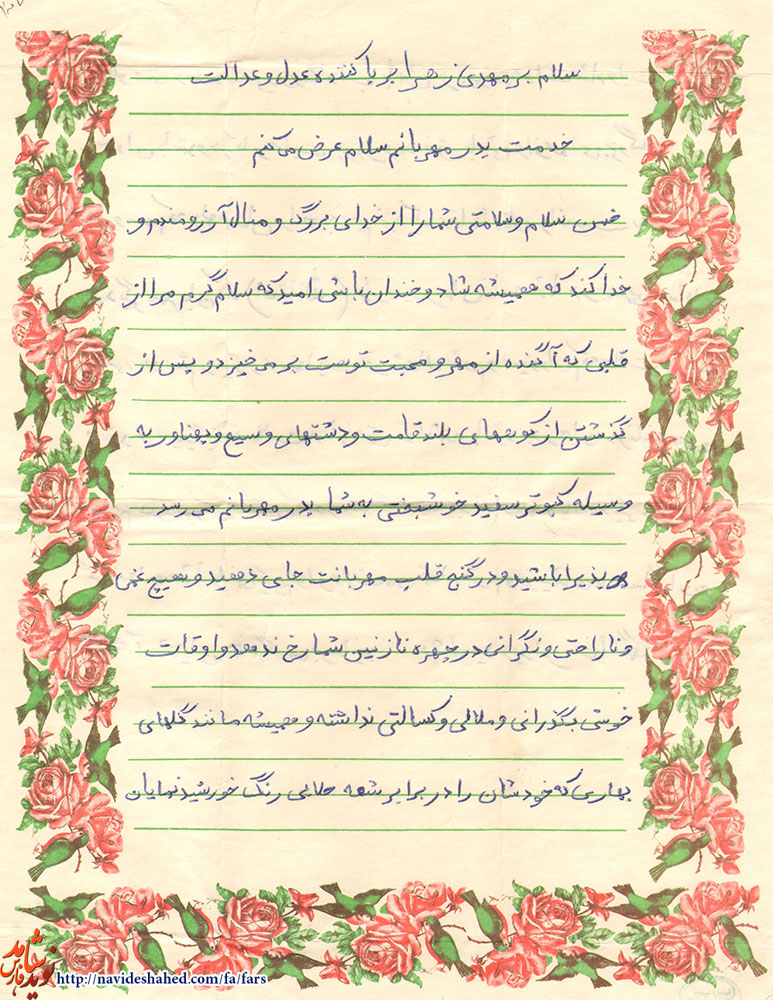 سلام بر مهدی زهرا بر پا کننده عدل و عدالت
خدمت پدر مهربانم سلام عرض می کنم
ضمن سلام و سلامتی شما را از خدای بزرگ و منال آرزومندم و
خدا کند که همیشه شاد و خندان باشی امید که سلام گرم مرا از
قلبی که آکنده از مهر و محبت توست بر می خیزد و پس از
گذشتن از کوههای بلند قامت و دشتهای وسیع و پهناور به
وسیله کبوتر سفید خوشبختی به شما پدر مهربانم می رسد
پذیرا باشید و در کنج قلب مهربانت جای دهید و هیچ غمی
و ناراحتی و نگرانی در چهره نازنین شما رخ ندهد و اوقات
خوشی بگذرانی و ملالی و کسالتی نداشته و همیشه مانند گلهای
بهاری که خودشان را در برابر شعه طلایی رنگ خورشید نمایان
نوید شاهد فارس
http://navideshahed.com/fa/fars